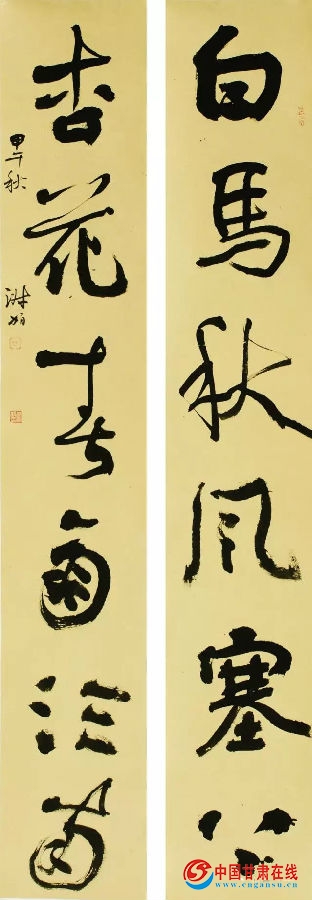 白馬秋风塞上
杏花春雨江南
甲午秋
中国甘肃在线
www.cngansu.cn